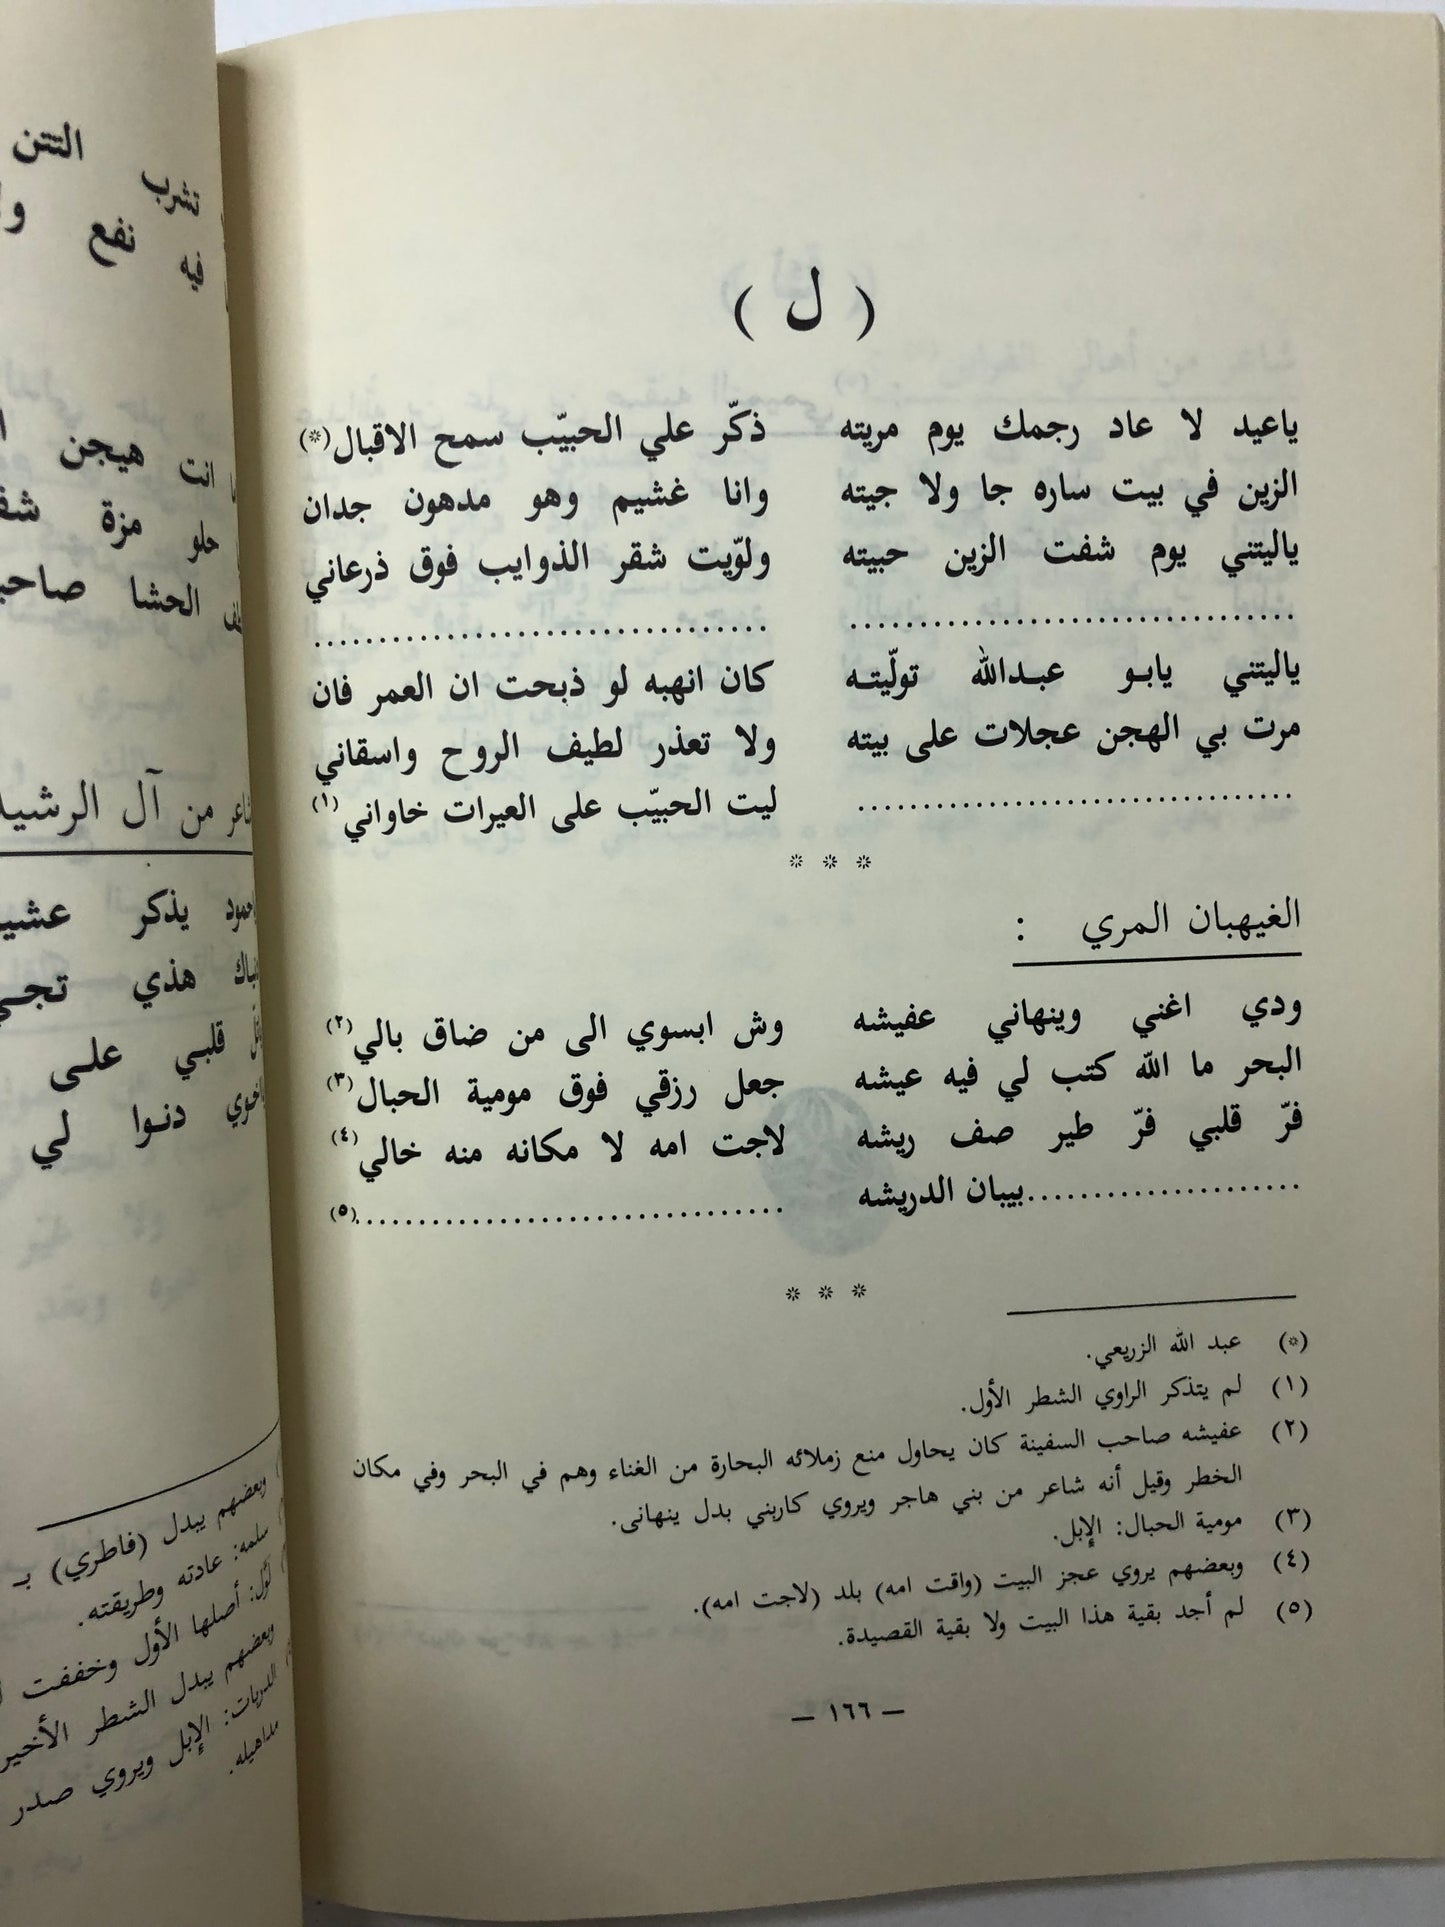 ( ل )
ياعيد لا عاد رجمك يوم مريته ذكّر علي الحبيّب سمح الاقبال(*)
الزين في بيت ساره جا ولا جيته وانا غشيم وهو مدهون جدان
ياليتني يوم شفت الزين حبيته ولوّيت شقر الذوايب فوق ذرعاني
................................. .................................
ياليتني يابو عبدالله تولّيته كان انهبه لو ذبحت ان العمر فان
مرت بي الهجن عجلات على بيته ولا تعذر لطيف الروح واسقاني
................................. ليت الحبيّب على العيرات خاواني(١)
* * *
الغيهبان المري :
ودي اغني وينهاني عفيشه وش ابسوي الى من ضاق بالي(٢)
البحر ما الله كتب لي فيه عيشه جعل رزقي فوق مومية الحبال(٣)
فرّ قلبي فرّ طير صف ريشه لاجت امه لا مكانه منه خالي(٤)
.....................بيبان الدريشه .................................(٥)
* * *
(*) عبد الله الزريعي.
(١) لم يتذكر الراوي الشطر الأول.
(٢) عفيشه صاحب السفينة كان يحاول منع زملائه البحارة من الغناء وهم في البحر وفي مكان
الخطر وقيل أنه شاعر من بني هاجر ويروي كاربني بدل ينهانى.
(٣) مومية الحبال: الإبل.
(٤) وبعضهم يروي عجز البيت (واقت امه) بلد (لاجت امه).
(٥) لم أجد بقية هذا البيت ولا بقية القصيدة.
— ١٦٦ —
تشرب التتن
فيه نفع
انت هيجن
حلو مزة
الحشا
من آل
يذكر
هذي
قلبي على
دنوا لي
وبعضهم يبدل (فاطري) بـ
سلمه: عادته وطريقته.
لوّل: أصلها الأول وخففت
وبعضهم يبدل الشطر الأخير
الدربات: الإبل ويروي صدر
مداهيله.